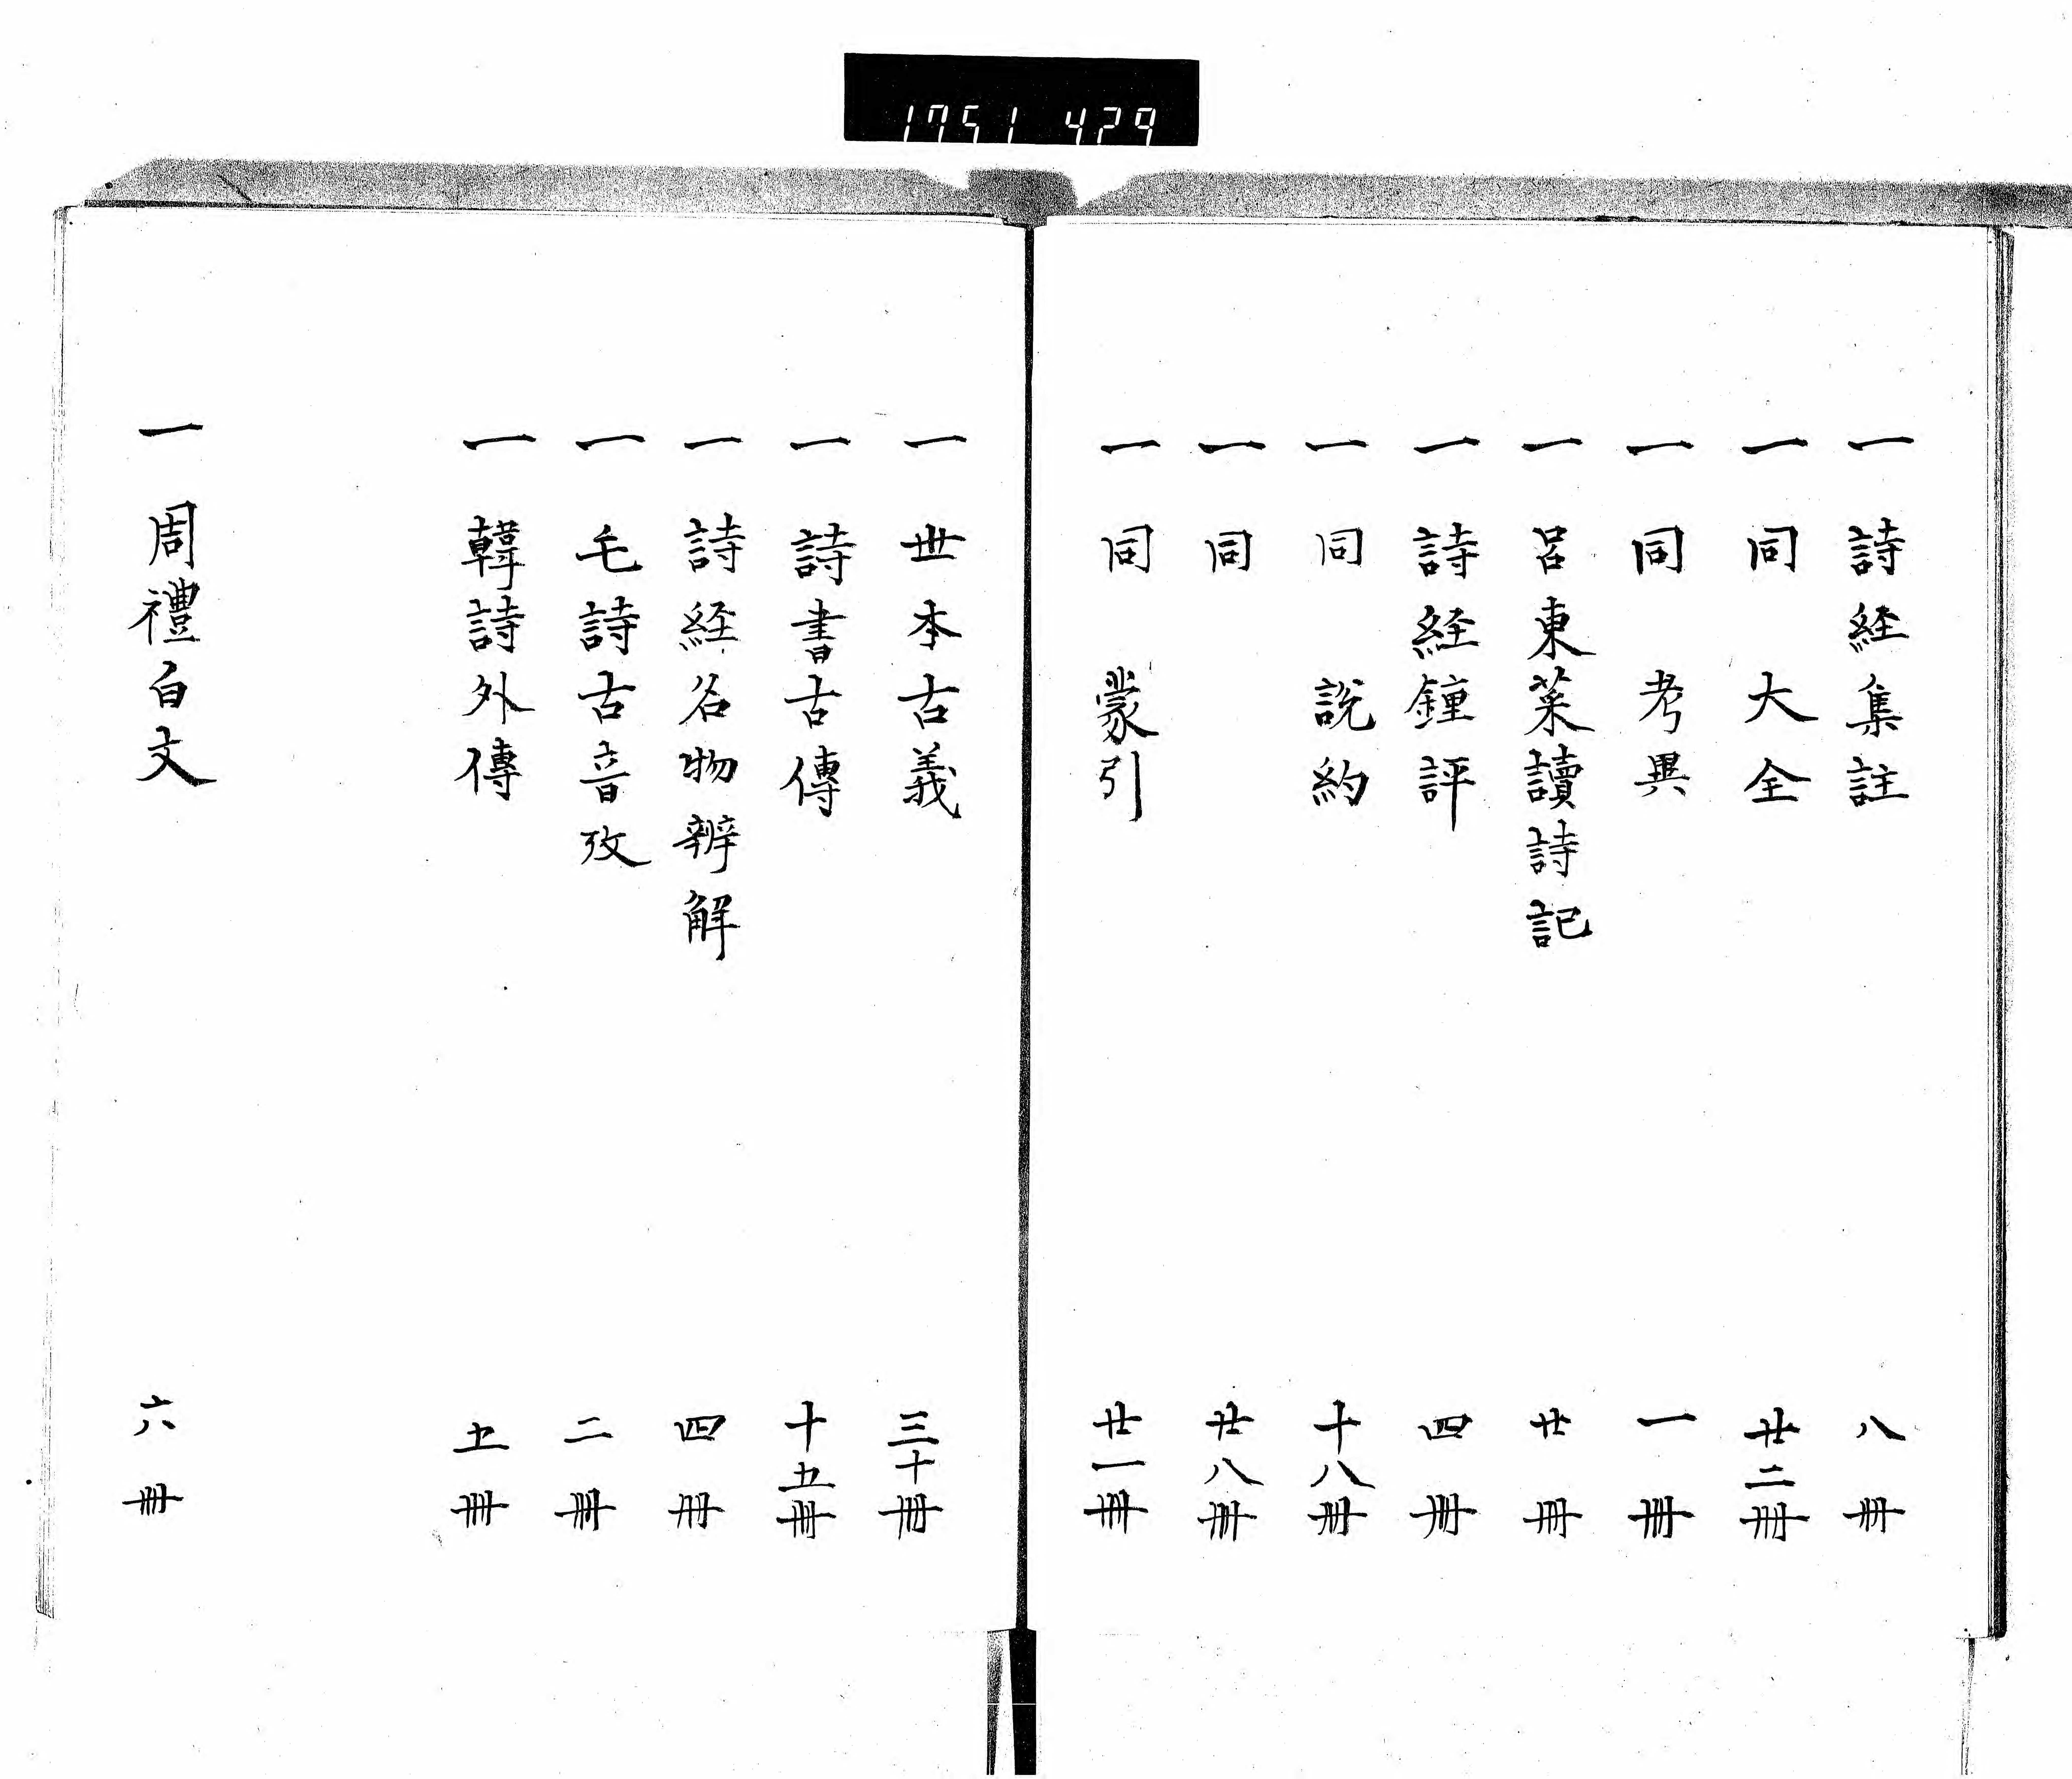 1751 429
一 詩経集註 八冊
一 同 大全 廿二冊
一 同 考異 一冊
一 呂東莱讀詩記 廿冊
一 詩経鐘評 四冊
一 同 説約 十八冊
一 同 廿八冊
一 同 蒙引 廿一冊
一 世本古義 三十冊
一 詩書古傳 十五冊
一 詩経名物辨解 四冊
一 毛詩古音攷 二冊
一 韓詩外傳 五冊
一 周禮白文 六冊